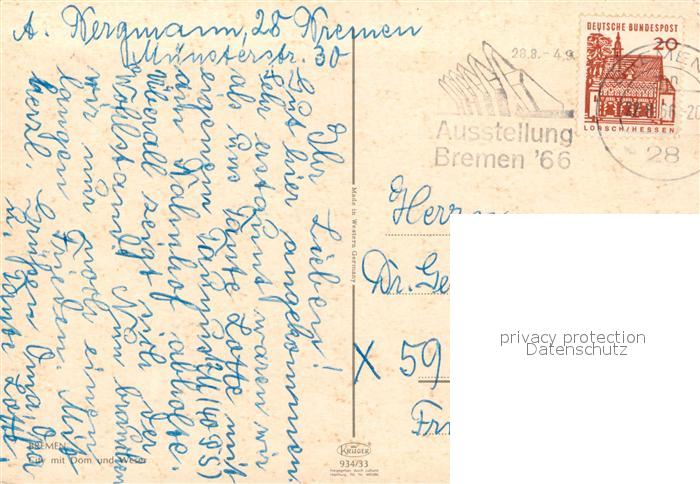 A. Bergmann, 28 Bremen
Münsterstr. 30
Ihr Lieben!
Gut hier angekommen.
Sehr erstaunt waren wir
als uns Tante Lotte mit
eigenem Taunus (40 PS)
am Bahnhof abholte.
Überall zeigt sich der
Wohlstand. Nun brauchen
wir nur noch einen
langen Frieden. Mit
herzl. Grüßen Oma, Opa
u. Tante Lotte.
28.8. – 4.9.
Ausstellung
Bremen '66
DEUTSCHE BUNDESPOST
20
LORSCH/HESSEN
BREMEN
28
Made in Western Germany
Herrn
Dr. Ge
X 59
BREMEN
City mit Dom und Weser
KRÜGER
934/33
privacy protection
Datenschutz